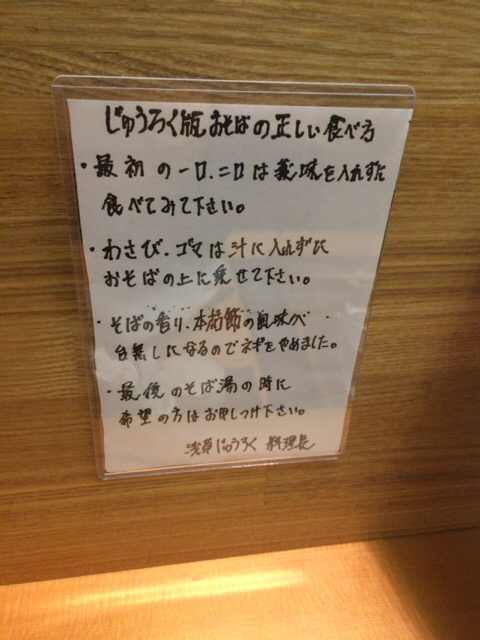 じゅうろく版おそばの正しい食べ方
・最初の一口、二口は薬味を入れずに
食べてみて下さい。
・わさび、ゴマは汁に入れずに
おそばの上に乗せて下さい。
・そばの香り、本枯節の風味が
台無しになるのでネギをやめました。
・最後のそば湯の時に
希望の方はお申しつけ下さい。
浅草じゅうろく 料理長